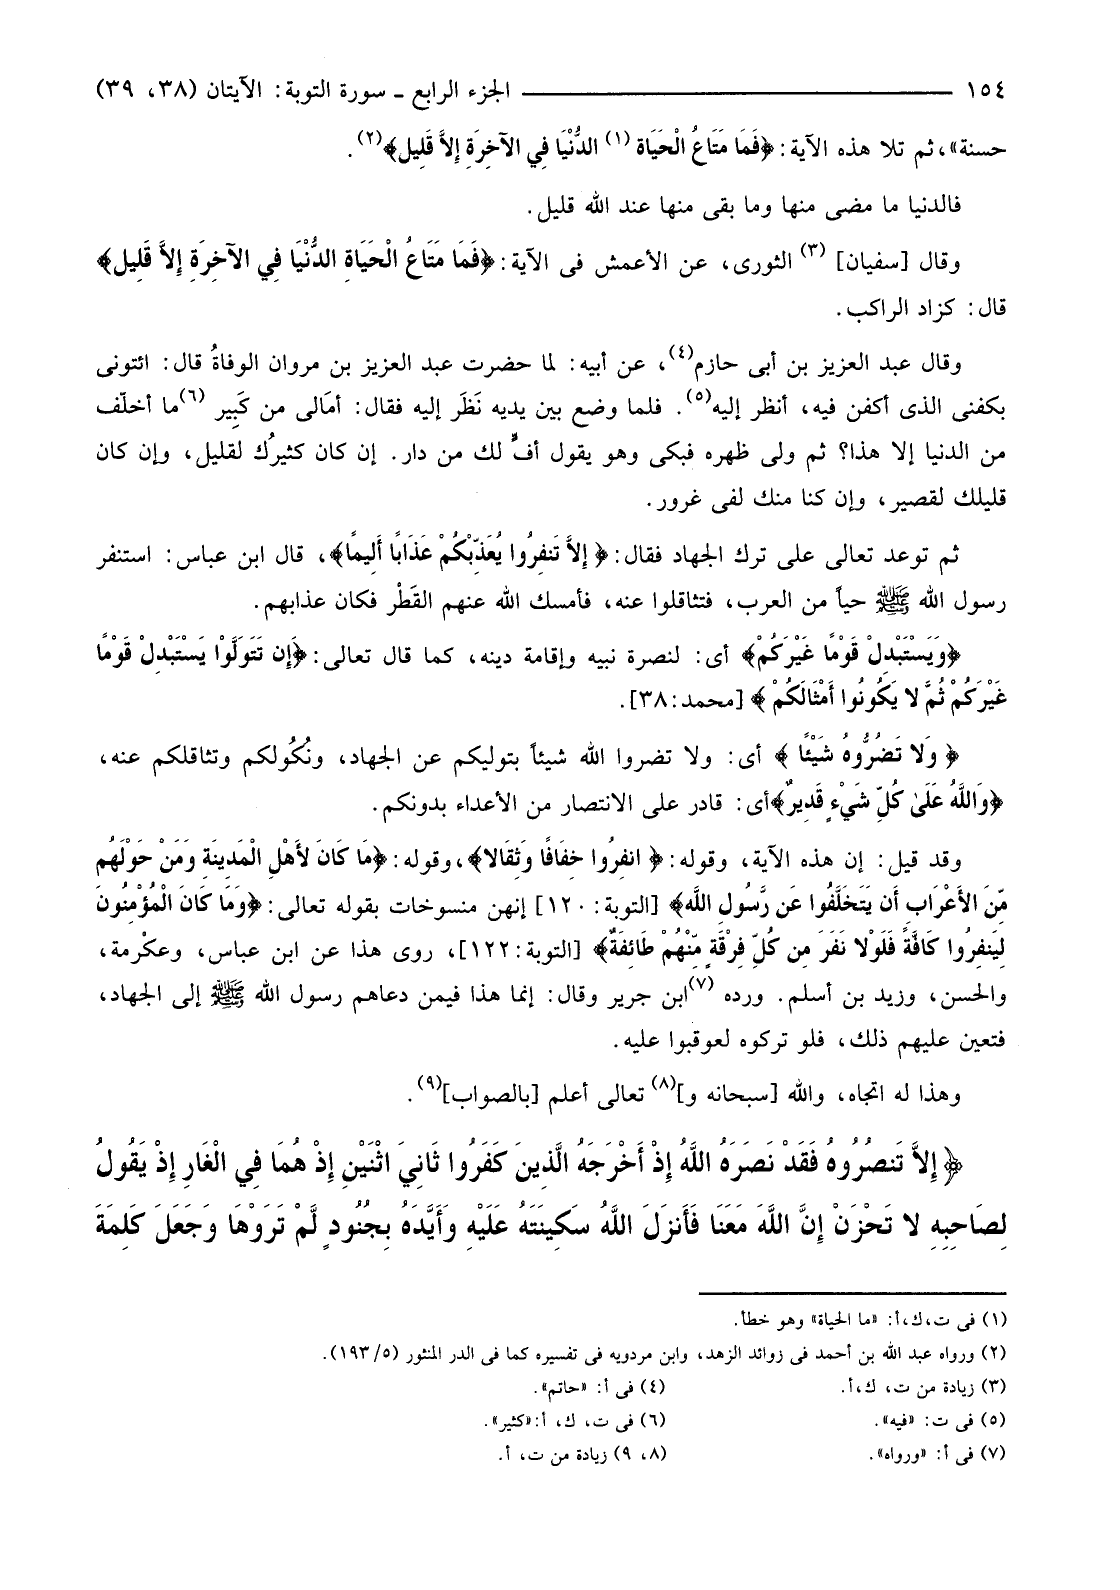 ١٥٤ ــــــــ الجزء الرابع ـ سورة التوبة: الآيتان (٣٨، ٣٩)
حسنة»، ثم تلا هذه الآية: ﴿فَمَا مَتَاعُ الْحَيَاة (١) الدُّنْيَا فِي الآخِرَةِ إِلاَّ قَلِيل﴾(٢).
فالدنيا ما مضى منها وما بقى منها عند الله قليل.
وقال [سفيان] (٣) الثورى، عن الأعمش فى الآية: ﴿فَمَا مَتَاعُ الْحَيَاةِ الدُّنْيَا فِي الآخِرَةِ إِلاَّ قَلِيل﴾
قال: كزاد الراكب.
وقال عبد العزيز بن أبى حازم(٤)، عن أبيه: لما حضرت عبد العزيز بن مروان الوفاةُ قال: ائتونى
بكفنى الذى أكفن فيه، أنظر إليه(٥). فلما وضع بين يديه نَظَر إليه فقال: أمَالى من كَبِير (٦)ما أخلّف
من الدنيا إلا هذا؟ ثم ولى ظهره فبكى وهو يقول أفٍّ لك من دار. إن كان كثيرُك لقليل، وإن كان
قليلك لقصير، وإن كنا منك لفى غرور.
ثم توعد تعالى على ترك الجهاد فقال: ﴿ إِلاَّ تَنفِرُوا يُعَذِّبْكُمْ عَذَابًا أَلِيمًا﴾، قال ابن عباس: استنفر
رسول الله ﷺ حياً من العرب، فتثاقلوا عنه، فأمسك الله عنهم القَطْر فكان عذابهم.
﴿وَيَسْتَبْدِلْ قَوْمًا غَيْرَكُمْ﴾ أى: لنصرة نبيه وإقامة دينه، كما قال تعالى: ﴿إِن تَتَوَلَّوْا يَسْتَبْدِلْ قَوْمًا
غَيْرَكُمْ ثُمَّ لا يَكُونُوا أَمْثَالَكُمْ ﴾ [محمد:٣٨].
﴿ وَلا تَضُرُّوهُ شَيْئًا ﴾ أى: ولا تضروا الله شيئاً بتوليكم عن الجهاد، ونُكُولكم وتثاقلكم عنه،
﴿وَاللَّهُ عَلَىٰ كُلِّ شَيْءٍ قَدِيرٌ﴾أى: قادر على الانتصار من الأعداء بدونكم.
وقد قيل: إن هذه الآية، وقوله: ﴿ انفِرُوا خِفَافًا وَثِقَالا﴾،وقوله: ﴿مَا كَانَ لأَهْلِ الْمَدِينَةِ وَمَنْ حَوْلَهُم
مِّنَ الأَعْرَابِ أَن يَتَخَلَّفُوا عَن رَّسُولِ اللَّه﴾ [التوبة: ١٢٠] إنهن منسوخات بقوله تعالى: ﴿وَمَا كَانَ الْمُؤْمِنُونَ
لِيَنفِرُوا كَافَّةً فَلَوْلا نَفَرَ مِن كُلِّ فِرْقَةٍ مِّنْهُمْ طَائِفَةٌ﴾ [التوبة:١٢٢]، روى هذا عن ابن عباس، وعكْرمة،
والحسن، وزيد بن أسلم. ورده (٧)ابن جرير وقال: إنما هذا فيمن دعاهم رسول الله ﷺ إلى الجهاد،
فتعين عليهم ذلك، فلو تركوه لعوقبوا عليه.
وهذا له اتجاه، والله [سبحانه و](٨) تعالى أعلم [بالصواب](٩).
﴿ إِلاَّ تَنصُرُوهُ فَقَدْ نَصَرَهُ اللَّهُ إِذْ أَخْرَجَهُ الَّذِينَ كَفَرُوا ثَانِيَ اثْنَيْنِ إِذْ هُمَا فِي الْغَارِ إِذْ يَقُولُ
لِصَاحِبِهِ لا تَحْزَنْ إِنَّ اللَّهَ مَعَنَا فَأَنزَلَ اللَّهُ سَكِينَتَهُ عَلَيْهِ وَأَيَّدَهُ بِجُنُودٍ لَّمْ تَرَوْهَا وَجَعَلَ كَلِمَةَ
(١) فى ت،ك،أ: «ما الحياة» وهو خطأ.
(٢) ورواه عبد الله بن أحمد فى زوائد الزهد، وابن مردويه فى تفسيره كما فى الدر المنثور (١٩٣/٥).
(٣) زيادة من ت، ك،أ. (٤) فى أ: «حاتم».
(٥) فى ت: «فيه». (٦) فى ت، ك، أ:«كثير».
(٧) فى أ: «ورواه». (٨، ٩) زيادة من ت، أ.